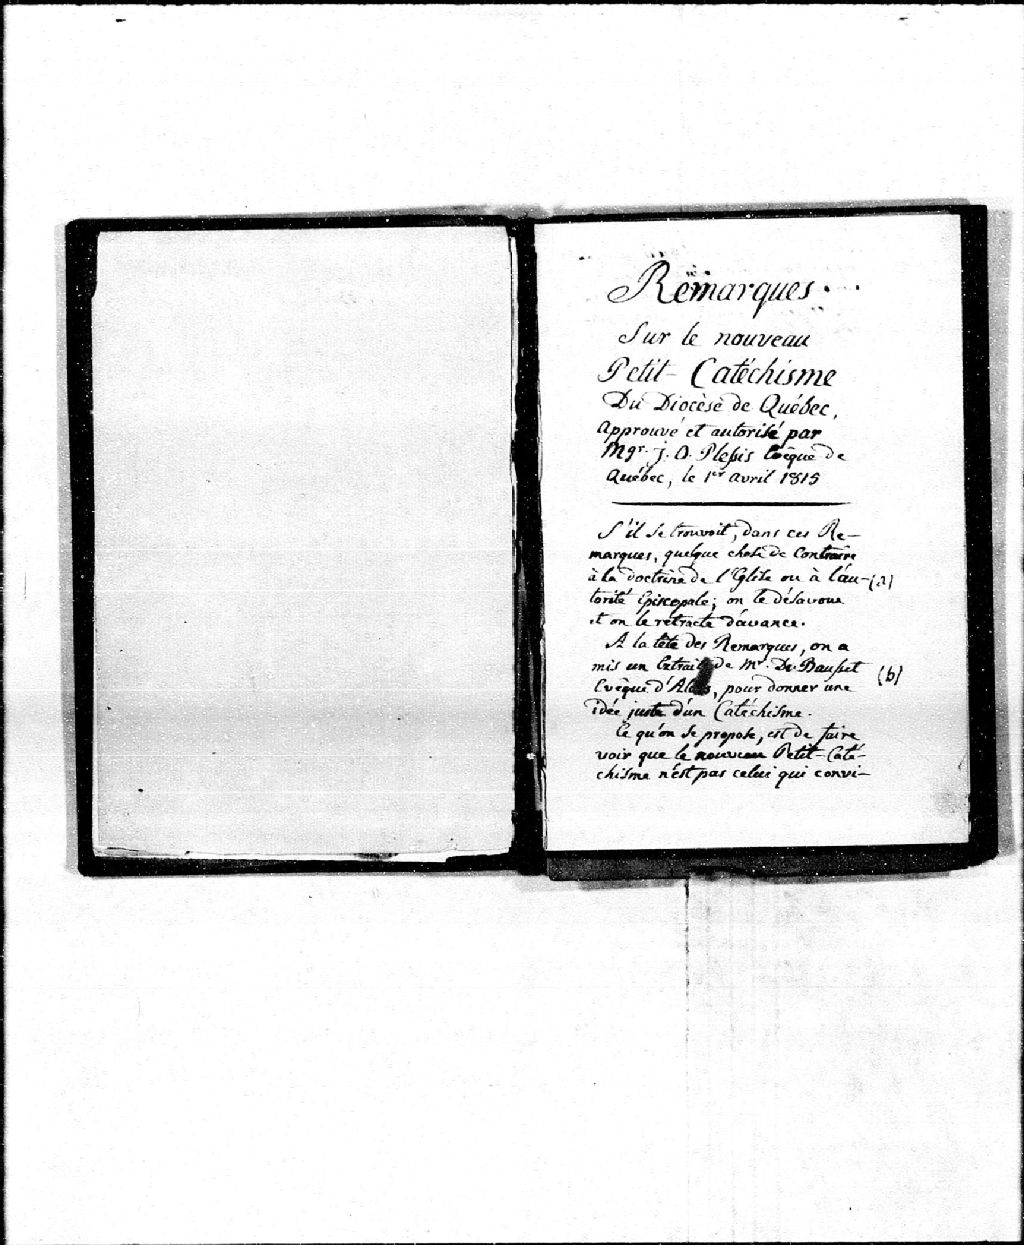 Remarques
Sur le nouveau
Petit-Catéchisme
Du Diocèse de Québec,
Approuvé et autorisé par
Mgr. J. O. Plessis Evêque de
Québec, le 1er avril 1815
S'il se trouvoit, dans ces Re-
marques, quelque chose de Contraire
à la doctrine de l'Eglise ou à l'au- (a)
torité Episcopale; on le désavoue
et on le rétracte d'avance.
A la tête des Remarques, on a
mis un Extrait de Mr. De Bausset (b)
Evêque d'Alais, pour donner une
idée juste d'un Catéchisme.
Ce qu'on se propose, est de faire
voir que le nouveau Petit-Caté-
chisme n'est pas celui qui convi-